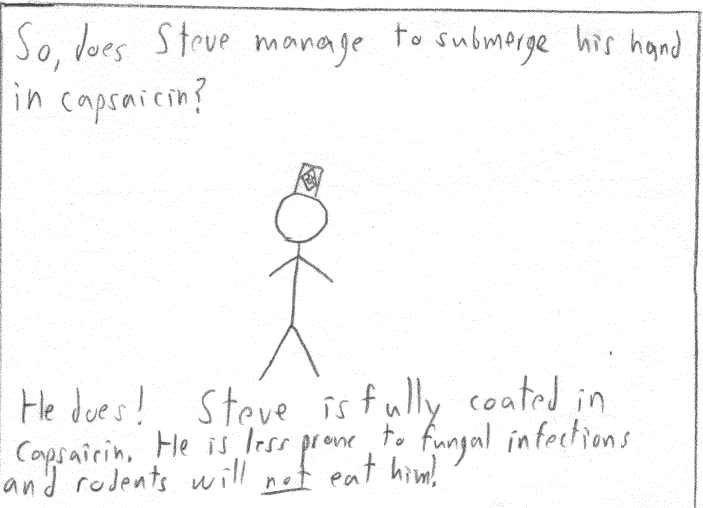 So, does Steve manage to submerge his hand
in capsaicin?
He does! Steve is fully coated in
capsaicin. He is less prone to fungal infections
and rodents will not eat him!